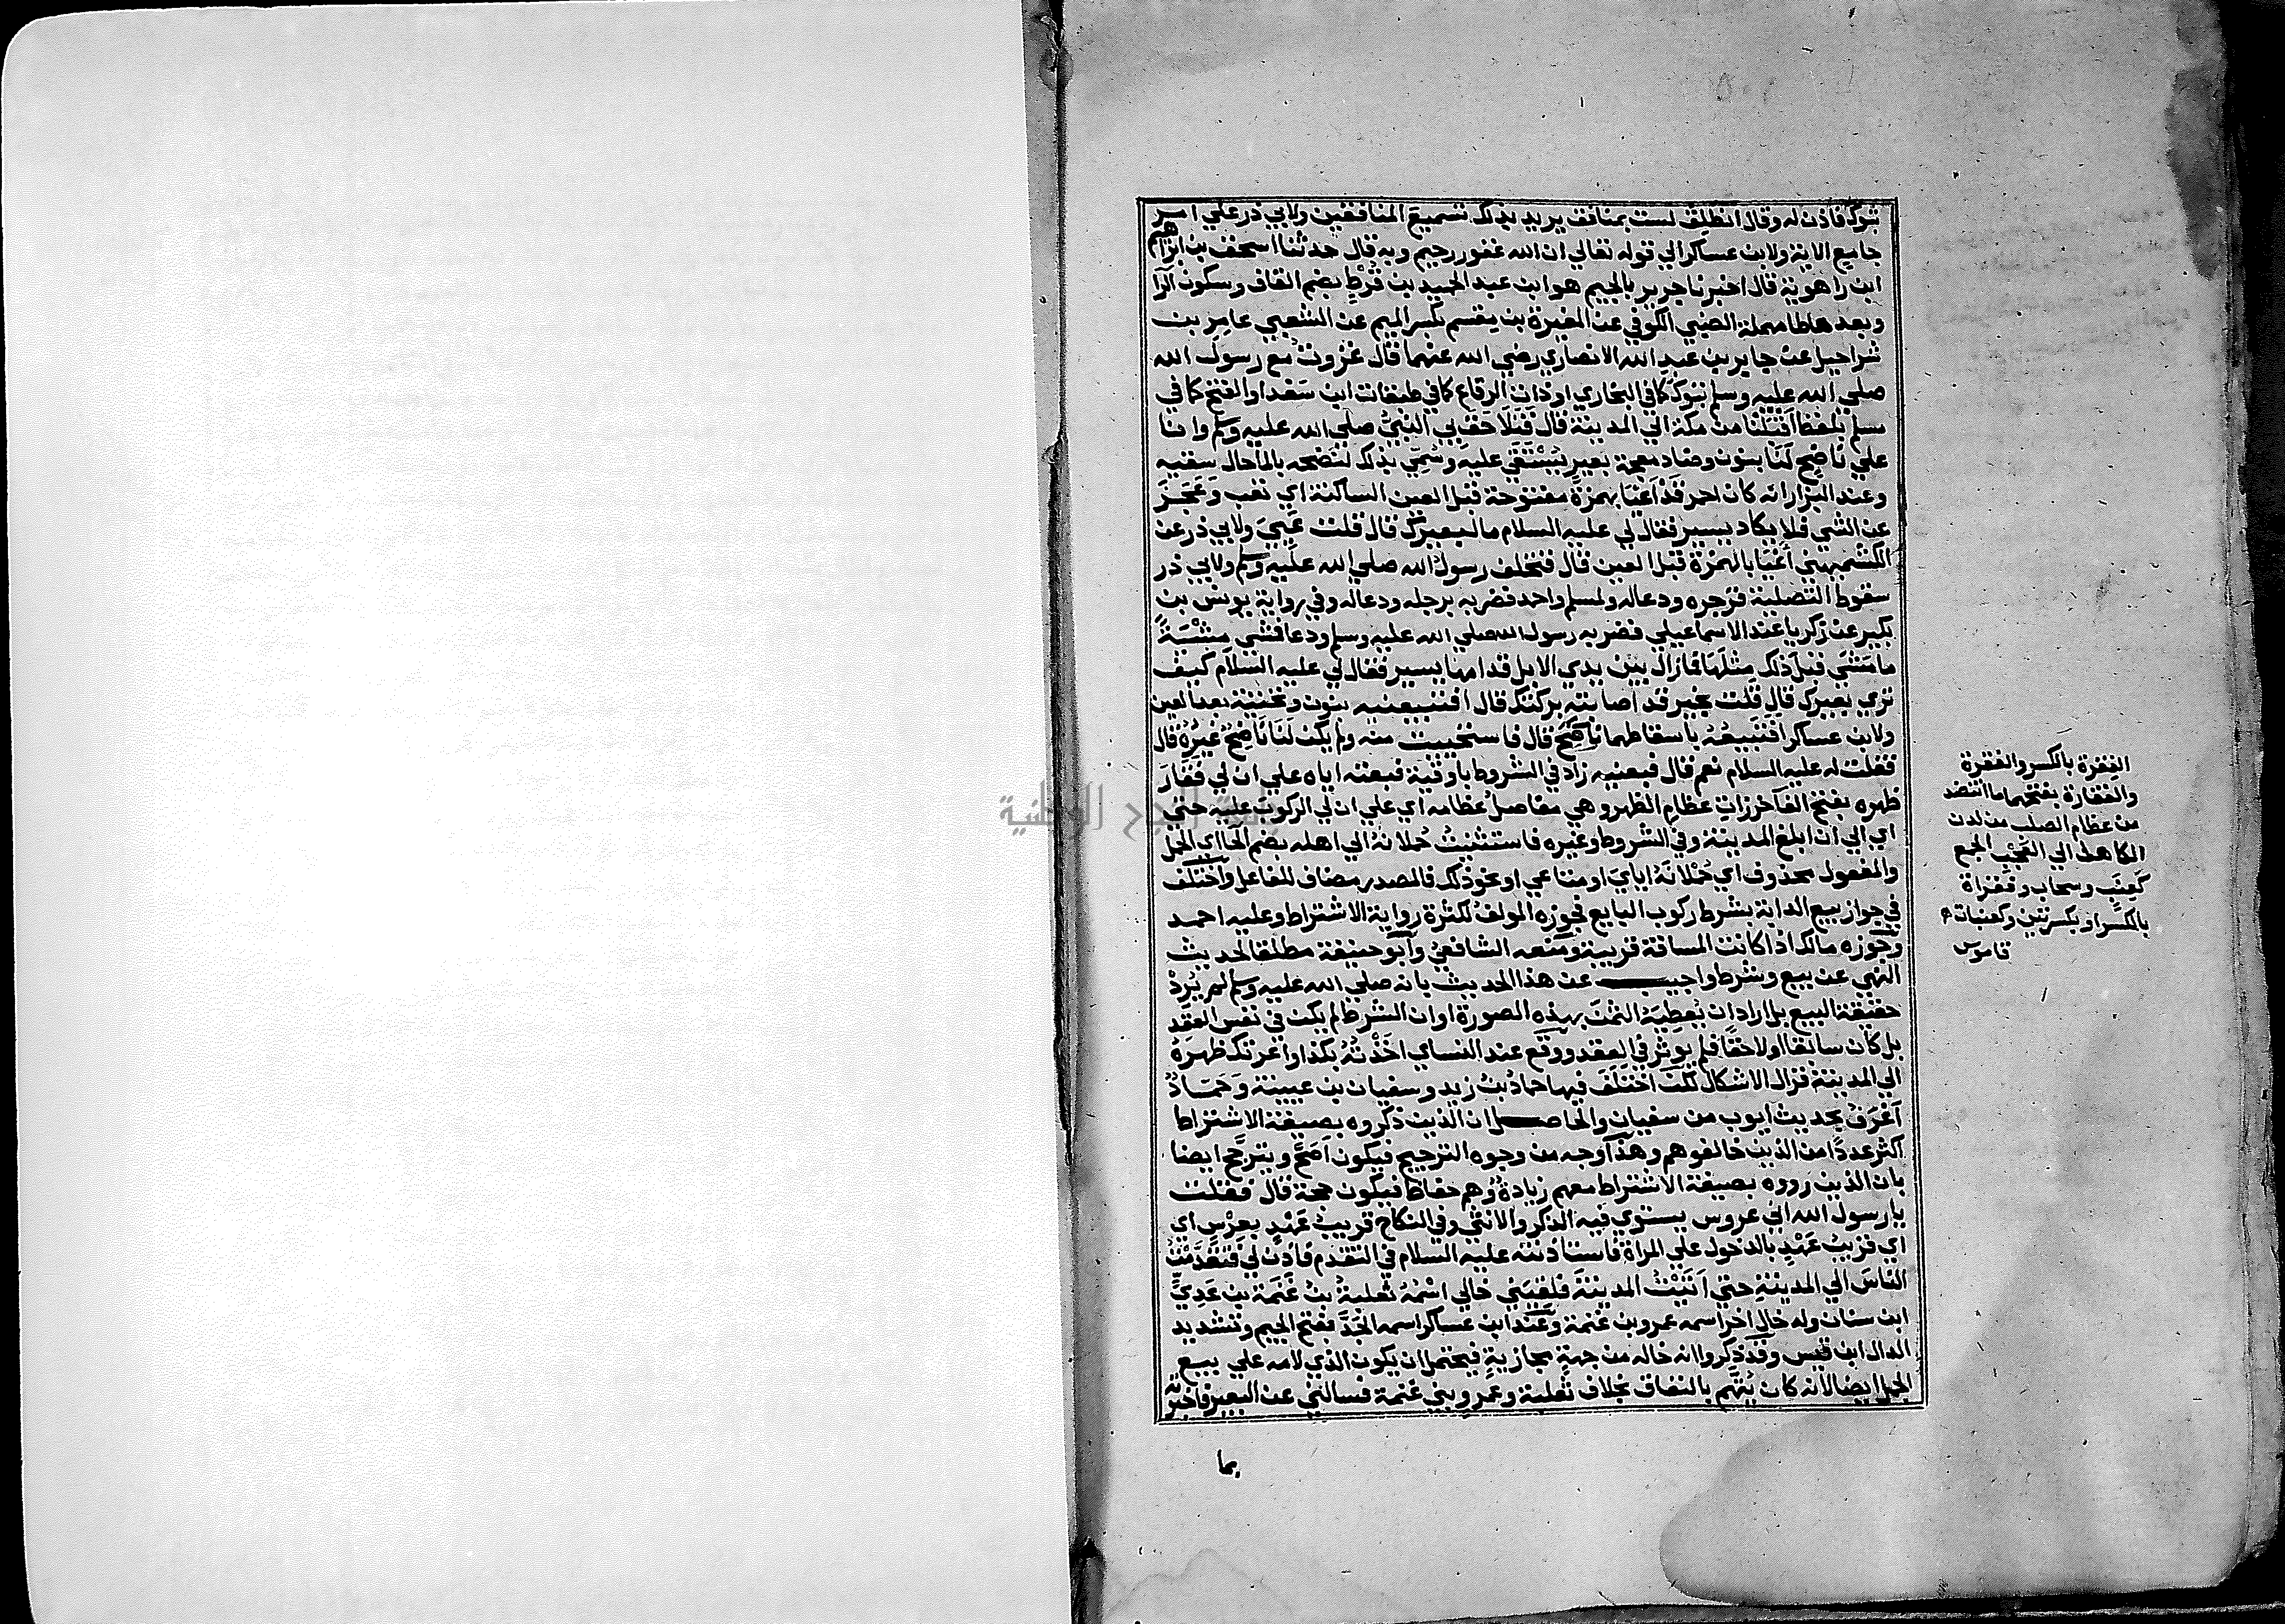 تبوك فاذن له وقال انطلق لست بمنافق يريد بذلك تسميع المنافقين ولابي ذر علي امر
جامع الاية ولابن عساكر الي قوله تعالي ان الله غفور رحيم وبه قال حدثنا اسحق بن ابراهيم
ابن راهوية قال اخبرنا جرير بالجيم هو ابن عبد الحميد بن قُرْطٍ بضم القاف وسكون الرا
وبعدها طا مهملة الضبي الكوفي عن المغيرة بن مقسم بكسر الميم عن الشعبي عامر بن
شراحيل عن جابر بن عبد الله الانصاري رضي الله عنهما قال غزوت مع رسول الله
صلي الله عليه وسلم تبوك كما في البخاري او ذات الرقاع كما في طبقات ابن سعد او الفتح كما في
مسلم بلفظ اقبلنا من مكة الي المدينة قال فَتَلَاحَقَ بي النبيُّ صلي الله عليه وسلم وانا
علي ناضِحٍ لَنَا بنون وضاد معجمة بعير يُسْتَقَي عليه وسُمِّي بذلك لنضحه بالما حال سقيه
وعند البزار انه كان احمر قَدْ اَعْيَا بهمزة مفتوحة قبل العين الساكنة اي تعب وعَجَزَ
عن المشي فلا يكاد يسير فقال لي عليه السلام ما لبعيرك قال قلت عَيِيَ ولابي ذر عن
الكشميهني أَعْيَا بالهمزة قبل العين قال فتخلف رسول الله صلي الله عليه وسلم ولابي ذر
سقوط التصلية فزجره ودعا له ولمسلم واحمد فضربه برجله ودعا له وفي رواية يونس بن
بكير عن زكريا عند الاسماعيلي فضربه رسول الله صلي الله عليه وسلم ودعا فمشي مِشْيَةً
ما مَشَي قبل ذلك مِثْلَهَا فما زال بين يدي الابل قدامها يسير فقال لي عليه السلام كيف
تري بعيرك قال قلت بخير قد اصابته بركتك قال افتبيعنيه بنون وتحتية بعد العين
ولابن عساكر افَتَبِيعُهُ باسقاطهما قال فاستحييت منه ولم يكن لَنَا نَاضِحٌ غيرُه قال
فقلت له عليه السلام نعم قال فبعنيه زاد في الشروط باوقية فبعته اياه علي ان لي فَقَارَ
ظهره بفتح الفا خرزات عظام الظهر وهي مفاصل عظامه اي علي ان لي الركوب عليه حتي
اي الي ان ابلغ المدينة وفي الشروط وغيره فاستثنيتُ حُملانهُ الي اهله بضم الحا اي الحمل
والمفعول محذوف اي حُمْلانَهُ ايايَ او متاعي او نحو ذلك فالمصدر مضاف للفاعل واختلف
في جواز بيع الدابة بشرط ركوب البايع فجوزه المولف لكثرة رواية الاشتراط وعليه احمد
وجوزه مالك اذا كانت المسافة قريبة ومنعه الشافعي وابو حنيفة مطلقا لحديث
النهي عن بيع وشرط واجيب عن هذا الحديث بانه صلي الله عليه وسلم لم يُرِدْ
حقيقة البيع بل اراد ان يُعطيَهُ الثمن بهذه الصورة او ان الشرط لم يكن في نفس العقد
بل كان سابقا او لاحقا فلم يوثر في العقد ووقع عند النساي اخَذْتُهُ بكذا واعرتك ظهرَهُ
الي المدينة فزال الاشكال لكن اختَلَفَ فيها حماد بن زيد وسفيان بن عيينة وحَمَّادٌ
اَعْرَفُ بحديث ايوب من سفيان والحاصل ان الذين ذكروه بصيغة الاشتراط
اكثر عددًا من الذين خالفوهم وهذا وجه من وجوه الترجيح فيكون اَصَحَّ ويترجح ايضا
بان الذين رووه بصيغة الاشتراط معهم زيادة وهم حفاظ فيكون حجة قال فقلت
يا رسول الله اني عروس يستوي فيه الذكر والانثي وفي النكاح قريبُ عَهْدٍ بعرْسٍ اي
اي قريبُ عَهْدٍ بالدخول علي المراة فاستاذنته عليه السلام في التقدم فاذن لي فتقدَّمْتُ
الناسَ الي المدينةِ حتي اَتَيْتُ المدينةَ فلقِيَني خالي اسْمُهُ ثعلبةُ بنُ غَنَمَةَ بن عَدِيِّ
ابن سنان وله خال اخر اسمه عمرو بن غنمة وعند ابن عساكر اسمه الجَدُّ بفتح الجيم وتشديد
الدال ابن قيس وقد ذكروا انه خاله من جهةٍ مجازيةٍ فيحتمل ان يكون الذي لامه علي بيع
الجمل ايضا لانه كان يُتَّهَم بالنفاق بخلاف ثعلبة وعمرو بني غنمة فسالني عن البعير فاخبرته
بما
الفِقرة بالكسر والفقرة
والفقارة بفتحهما ما انتضد
من عظام الصلب من لدن
الكاهل الي العَجْبِ الجمع
كَعِنَبٍ وسحاب وفقرات
بالكسر او بكسرتين وكعنبات
قاموس
جامعة النجاح الوطنية